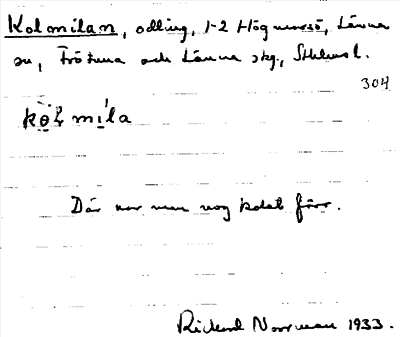 Kolmilan, odling, 1-2 Högmarsö, Länna
sn, Frötuna och Länna skg., Sthlms l.
304
kol mila
Där har man nog kolat förr.
Rickard Norrman 1933.